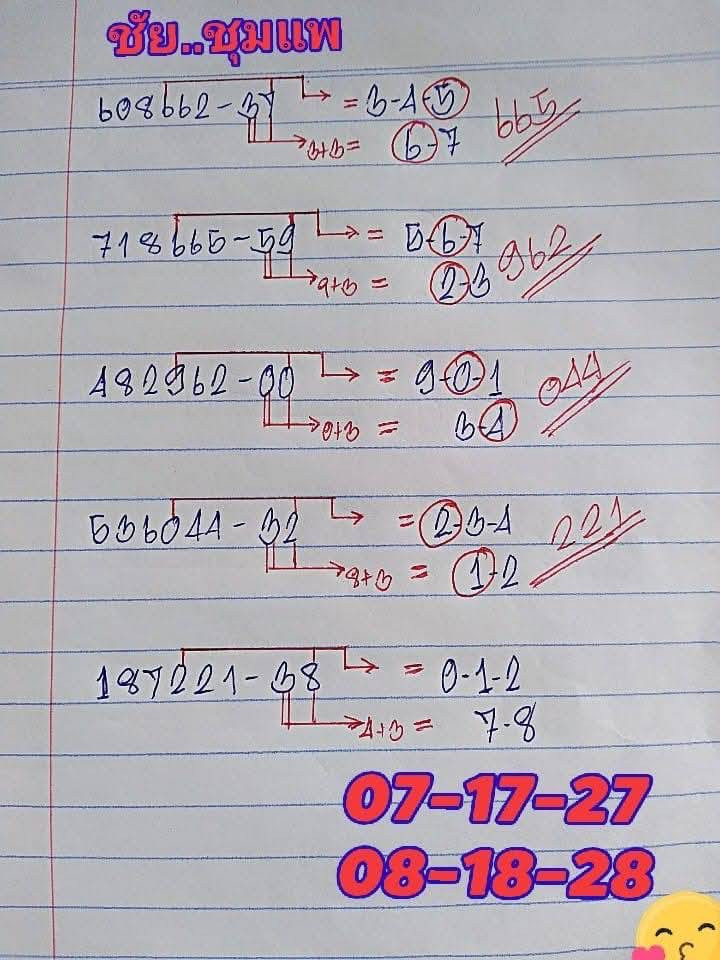 ชัย..ชุมแพ
608662-37 = 3-4-5 665
3+3= 6-7
718665-59 = 5-6-7 962
9+3 = 2-3
482962-00 = 9-0-1 044
0+3 = 3-4
536044-32 = 2-3-4 221
8+3 = 1-2
187221-38 = 0-1-2
4+3 = 7-8
07-17-27
08-18-28